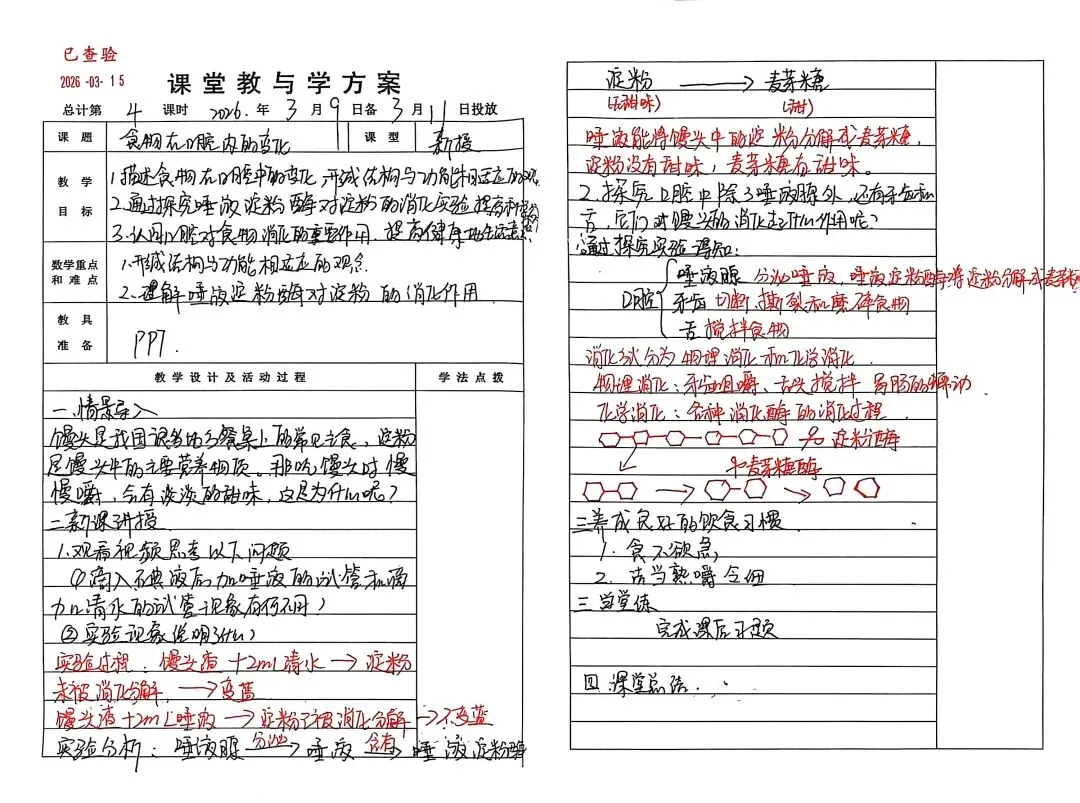 已查验
2026-03-15
课堂教与学方案
总计第 4 课时 2026.年 3 月 9 日备 3 月 11 日投放
课题 食物在口腔内的变化 课型 新授
教学目标
1.描述食物在口腔中的变化,形成结构与功能相适应的观
2.通过探究唾液淀粉酶对淀粉的消化实验提高科
3.认同口腔对食物消化的重要作用,提高健康地生活素
教学重点和难点
1.形成结构与功能相适应的观念
2.理解唾液淀粉酶对淀粉的消化作用
教具准备 PPT.
教学设计及活动过程 学法点拨
一.情景导入
馒头是我国很多地区餐桌上的常见主食,淀粉
是馒头中的主要营养物质。那吃馒头时慢
慢嚼,会有淡淡的甜味,这是为什么呢?
二新课讲授
1.观看视频思考以下问题
①滴入碘液后加唾液的试管和滴
加清水的试管现象有何不同?
②实验现象说明什么?
实验过程:馒头渣+2ml清水→淀粉
未被消化分解,→变蓝
馒头渣+2mL唾液→淀粉被消化分解→不变蓝
实验分析:唾液腺 分泌→ 唾液 含有→ 唾液淀粉酶
淀粉 → 麦芽糖
(无甜味) (甜)
唾液能将馒头中的淀粉分解成麦芽糖,
淀粉没有甜味,麦芽糖有甜味。
2.探究口腔中除了唾液腺外,还有牙齿和
舌,它们对馒头的消化起什么作用呢?
通过探究实验得知:
口腔
唾液腺 分泌唾液,唾液淀粉酶将淀粉分解成麦芽糖
牙齿 切断、撕裂和磨碎食物
舌 搅拌食物
消化方式分为物理消化和化学消化
物理消化:牙齿咀嚼、舌头搅拌 胃肠的蠕动
化学消化:各种消化酶的消化过程
淀粉酶
麦芽糖酶
三养成良好的饮食习惯
1.食不欲急,
2.当熟嚼令细
三当堂练
完成课后习题
四.课堂总结.